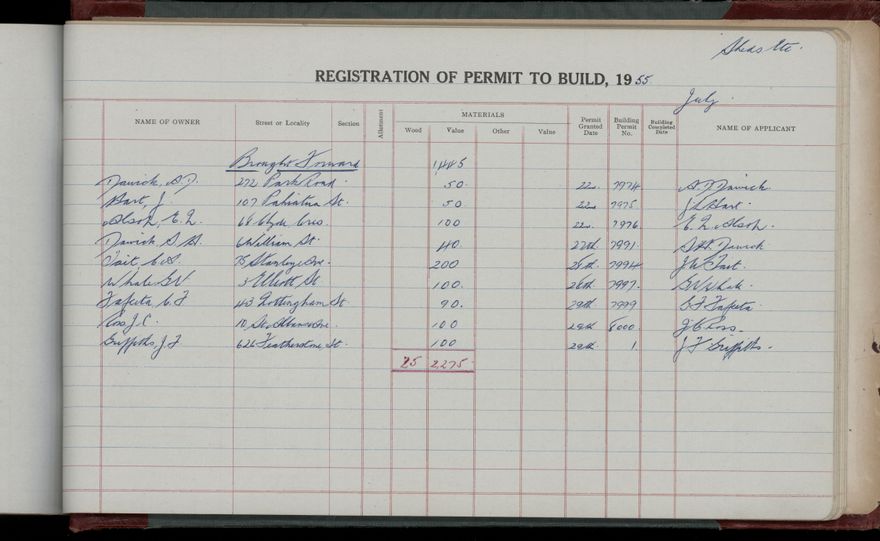 Sheds etc.
REGISTRATION OF PERMIT TO BUILD, 1955
July.
NAME OF OWNER Street or Locality Section Allotment MATERIALS Wood Value Other Value Permit Granted Date Building Permit No. Building Completed Date NAME OF APPLICANT
Brought Forward 1445
Dawick, A. J. 272 Park Road. 50. 22. 7974 A J Dawick
Hart, J. 107 Pahiatua St. 50 22. 7975 J L Hart.
Olson, E. L. 68 Clyde Cres. 100 22. 7976 E. L. Olson.
Dawick S. H. 6 William St. 40. 27th 7991. S H Dawick
Tait C. S. 75 Stanley Ave. 200 28th. 7994
Whale G V 5 Elliott St 100. 28th 7997. G V Whale
C. F 43 Lottingham St 90. 29th 7999 C. F
Ross J. C. 10 St. Albans Ave. 100 29th 8000 J C Ross.
Griffiths, J. F 626 Featherston St. 100 29th. 1 J F Griffiths.
25 2275